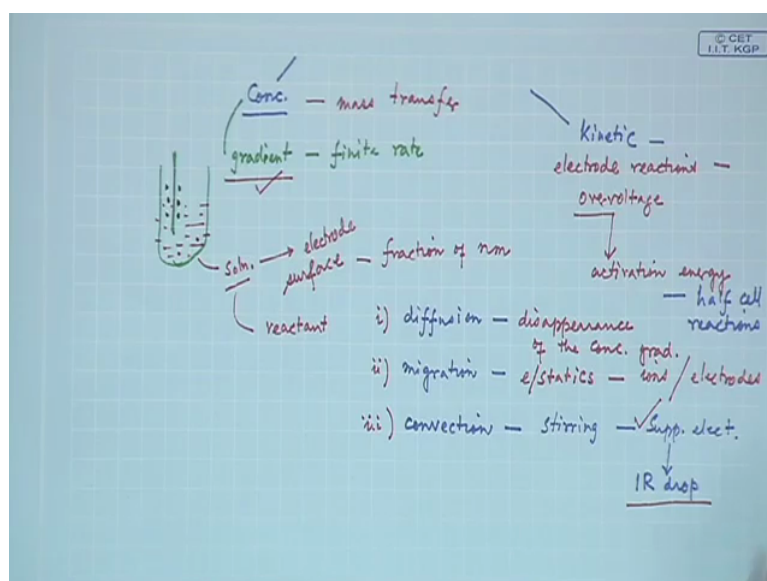 © CET
I.I.T. KGP
Conc. — mass transfer
gradient — finite rate
Kinetic —
electrode reactions —
over-voltage
activation energy
— half cell
reactions
Soln. → electrode
surface — fraction of nm
reactant
i) diffusion — disappearance
of the conc. grad.
ii) migration — e/statics — ions / electrodes
iii) convection — stirring — Supp. elect.
IR drop